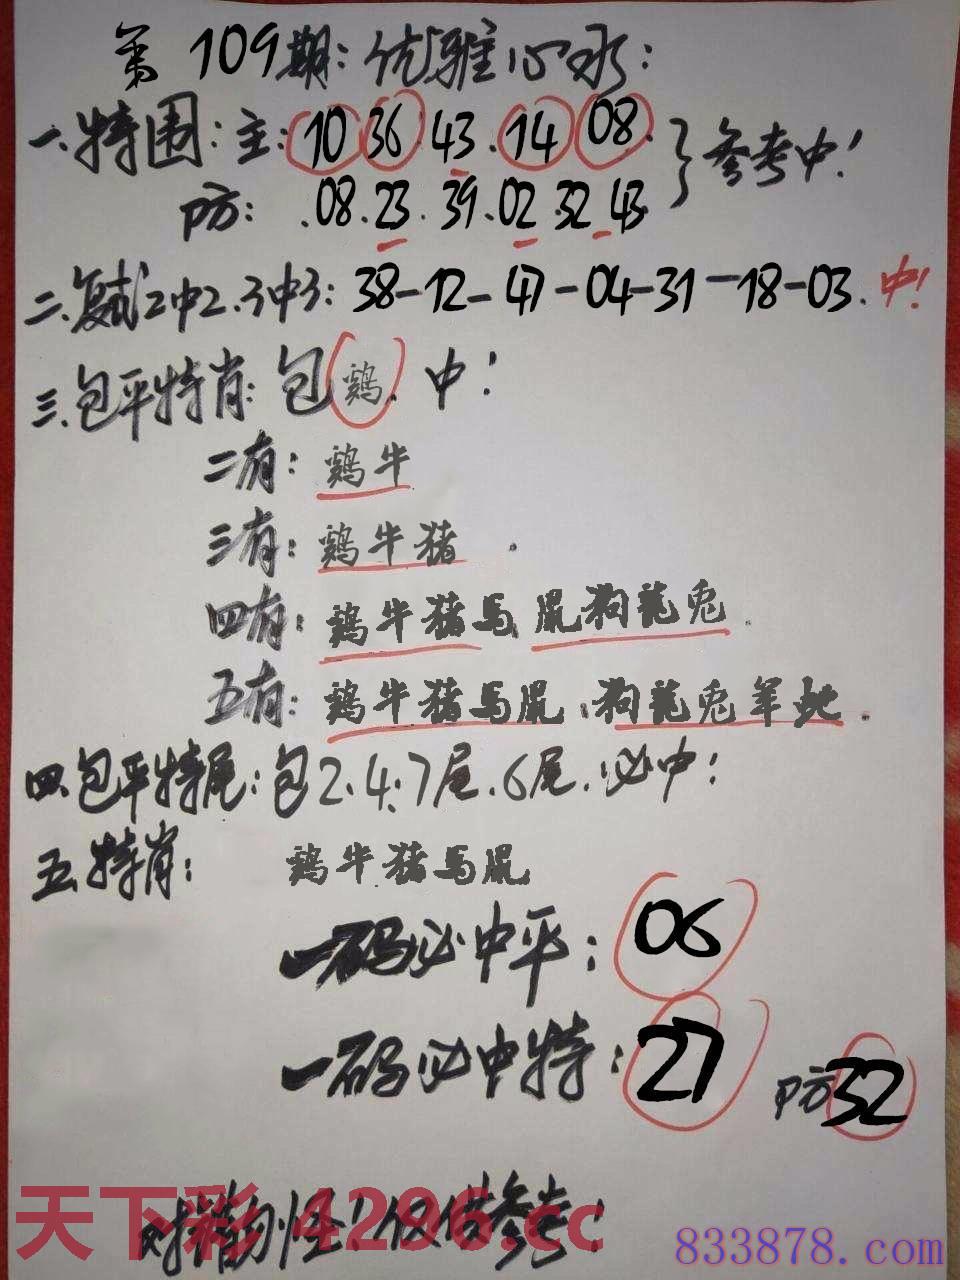 第109期:优雅心水:
一.特围:主:10 36.43.14 08.
防:.08.23.39.02.32.43.
}参考中!
二.复式2中2.3中3:38-12-47-04-31-18-03.中!
三.包平特肖:包鸡.中!
二有:鸡牛.
三有:鸡牛猪.
四有:鸡牛猪马.鼠狗龍兔.
五有:鸡牛猪马鼠.狗龍兔羊蛇.
四.包平特尾:包2.4.7尾.6尾.必中!
五.特肖:鸡牛.猪马鼠
一码必中平:06
一码必中特:27 防32
天下彩4296.cc
仅供参考!
833878.com